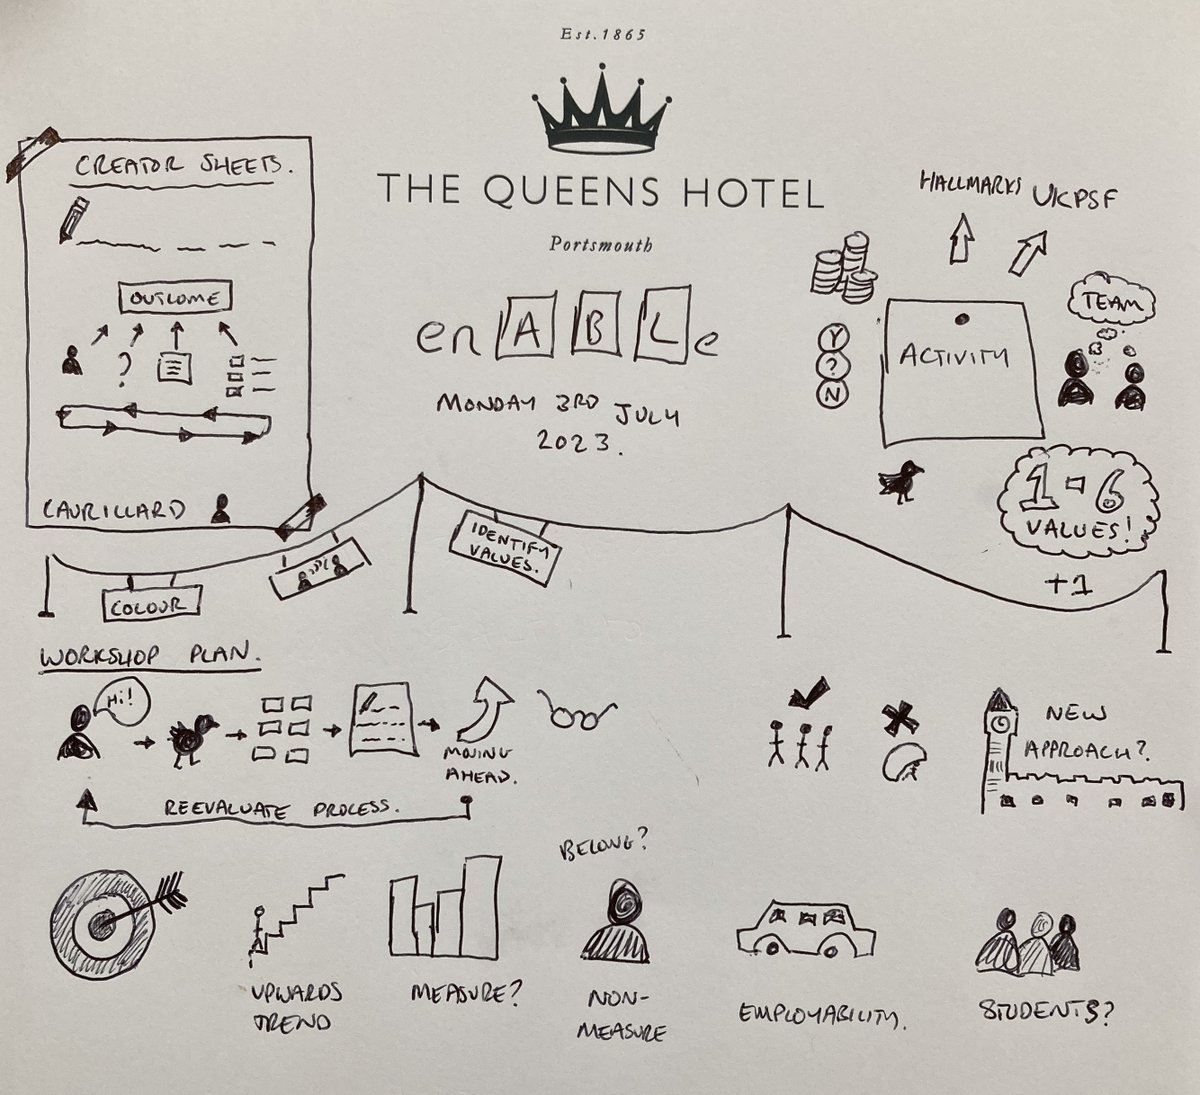 Est.1865
THE QUEENS HOTEL
Portsmouth
enABLe
MONDAY 3RD JULY
2023.
CREATOR SHEETS.
OUTCOME
?
LAURILLARD
HALLMARKS
UKPSF
TEAM
ACTIVITY
Y
?
N
1-6
VALUES!
+1
COLOUR
IDENTIFY
VALUES.
WORKSHOP PLAN.
Hi!
MOVING
AHEAD.
REEVALUATE PROCESS.
NEW
APPROACH?
UPWARDS
TREND
MEASURE?
BELONG?
NON-
MEASURE
EMPLOYABILITY.
STUDENTS?